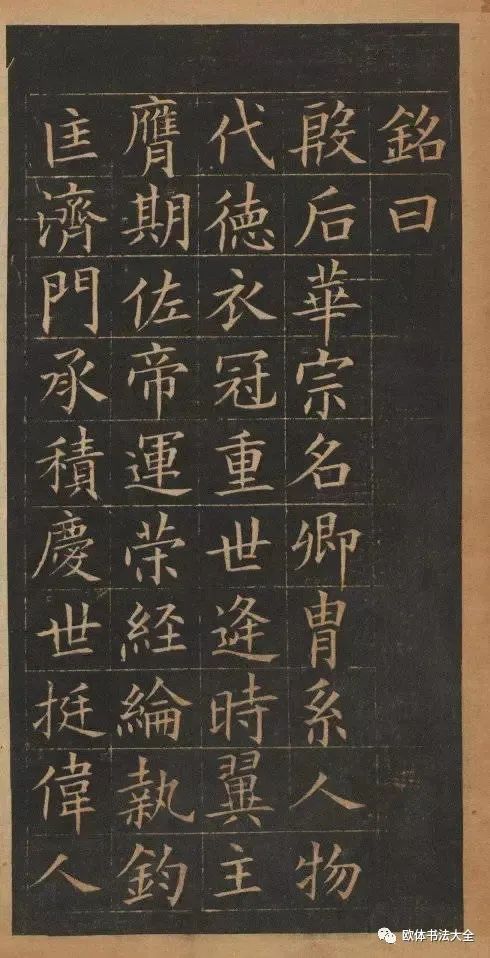 銘曰
殷后華宗名卿冑系人物
代徳衣冠重世逄時翼主
膺期佐帝運荣経綸執鈞
匡濟門承積慶世挺偉人
欧体书法大全